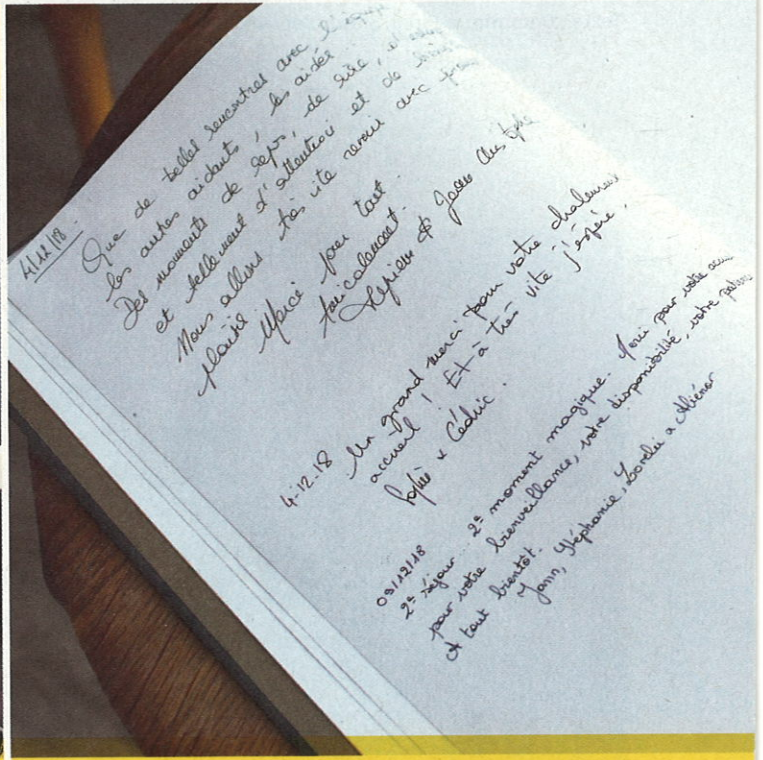 4/12/18.
Que de belles rencontres avec l'équipe
les autres aidants, les aidés
Des moments de repos, de rire, et
et tellement d'attention et de
Nous allons très vite revenir avec
plaisir Merci pour tout.
Amicalement.
& Jean Christophe
4-12-18 Un grand merci pour votre chaleureux
accueil ! Et à très vite j'espère.
Sophie & Cédric.
09/12/18
2e séjour... 2e moment magique. Merci pour votre
pour votre bienveillance, votre disponibilité, votre
A tout bientôt.
Yann, Stéphanie, Lorelei & Aliénor